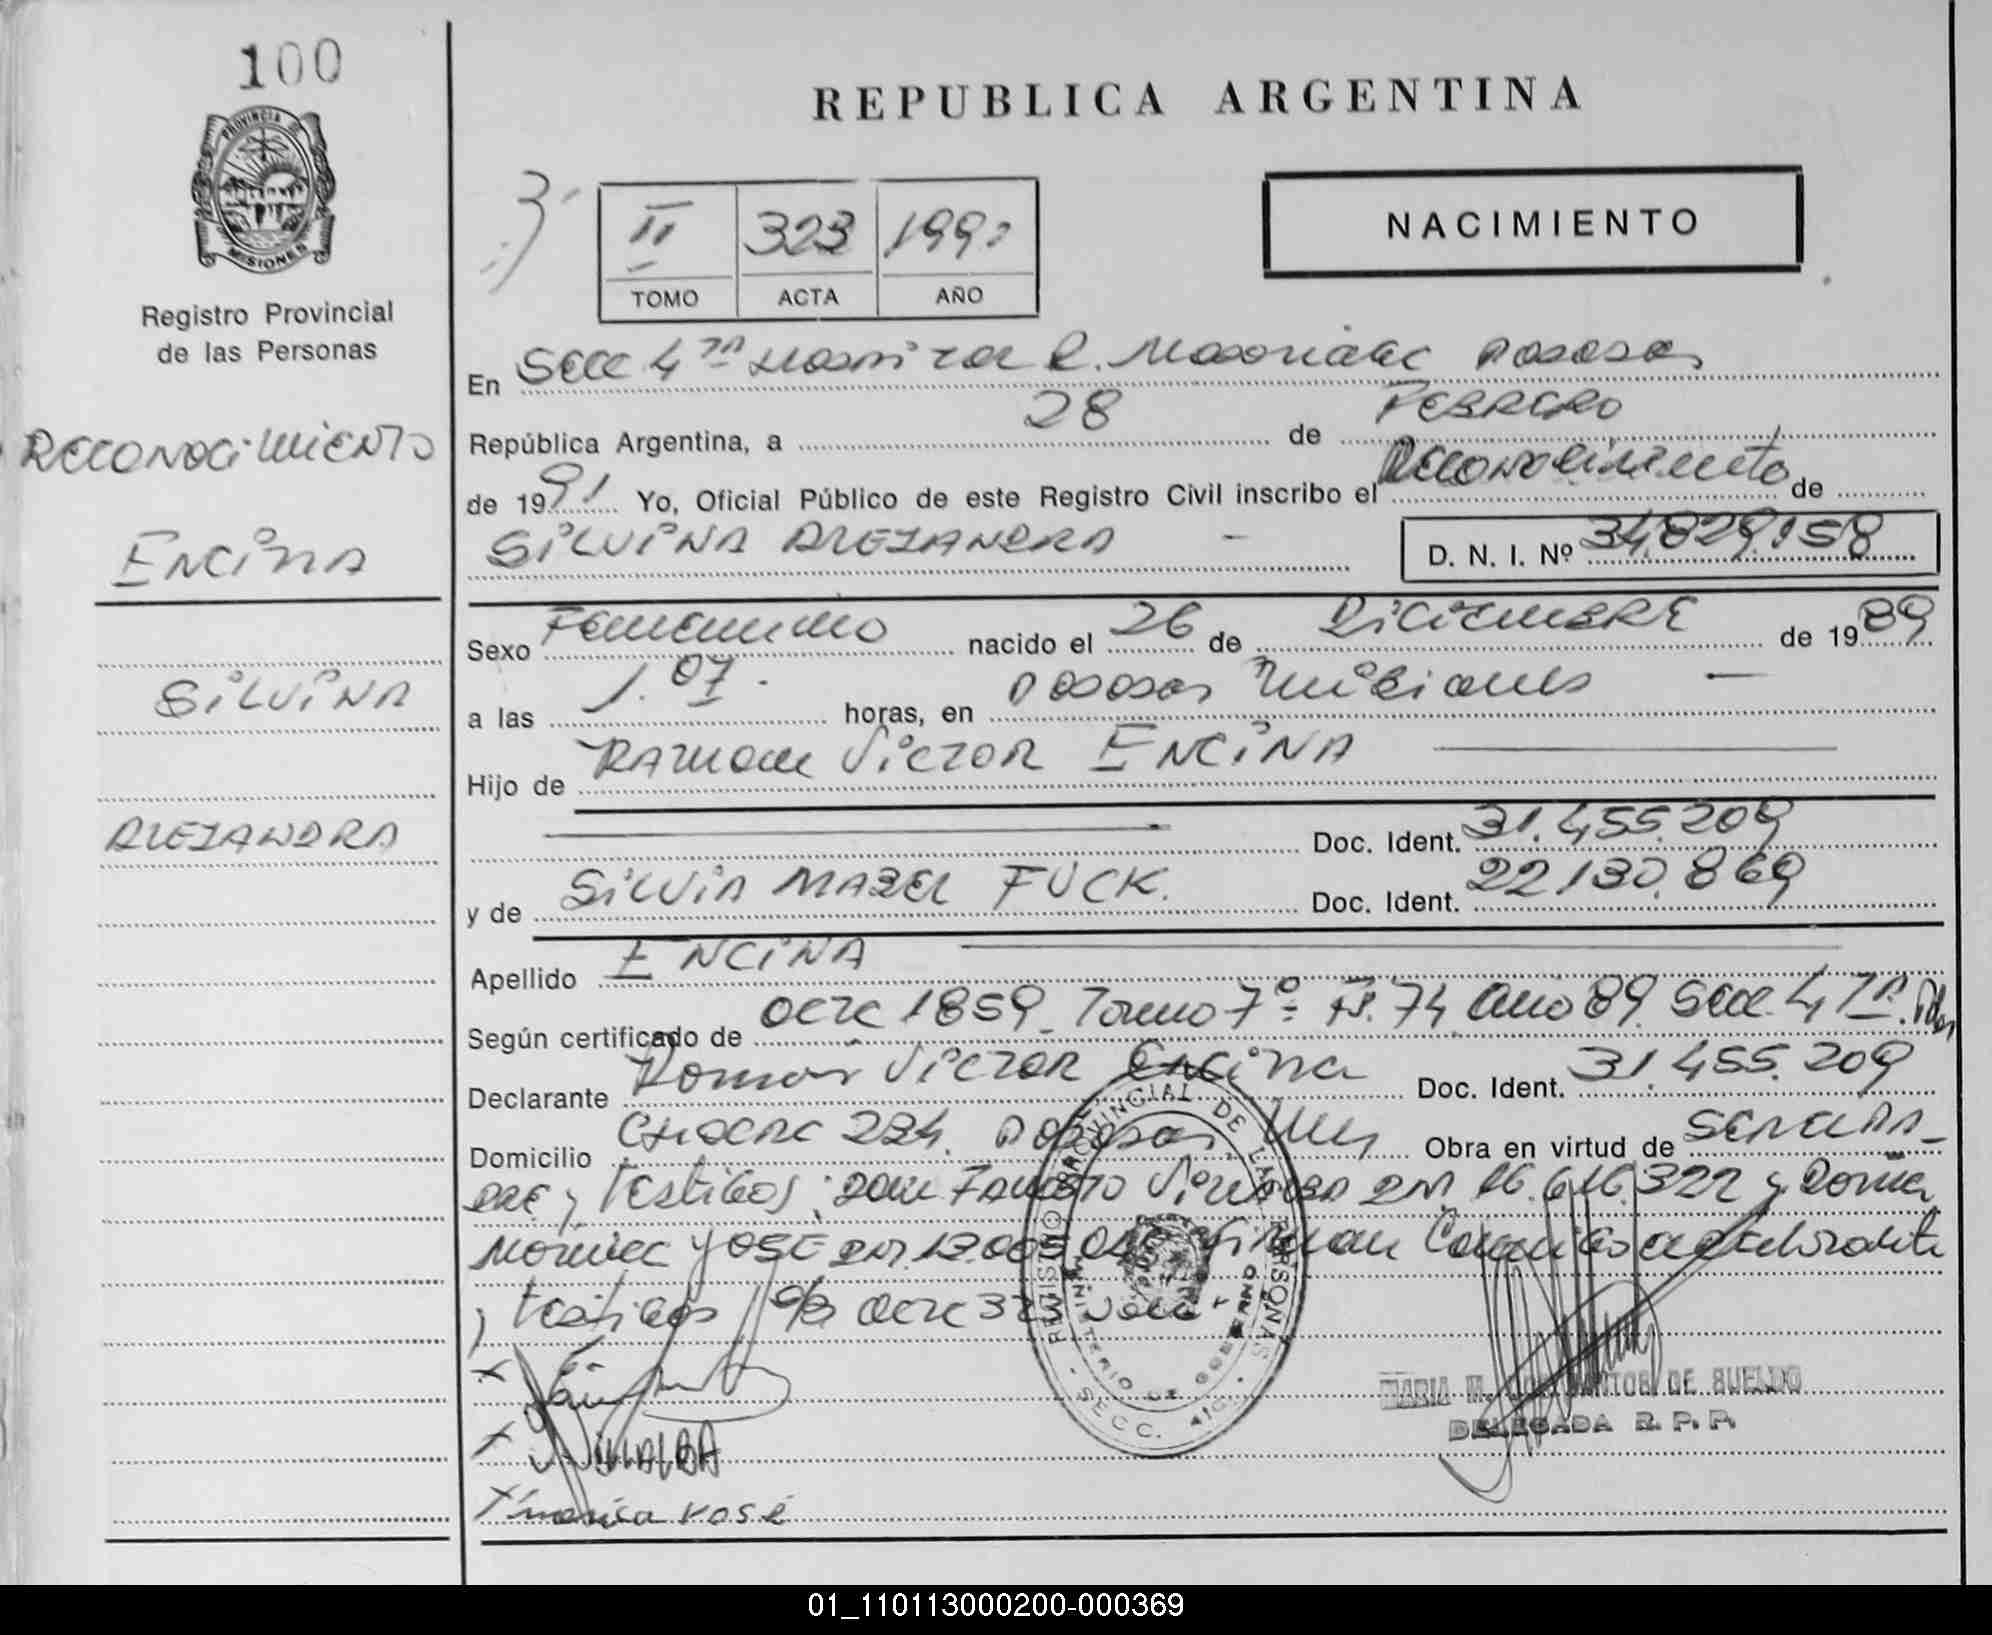 100
PROVINCIA DE
MISIONES
Registro Provincial
de las Personas
RECONOCIMIENTO
ENCINA
SILVINA
ALEJANDRA
REPUBLICA ARGENTINA
II 323 1991
TOMO ACTA AÑO
NACIMIENTO
En Secc 4ta Hospital R. Madariaga Posadas
República Argentina, a 28 de FEBRERO
de 1991 Yo, Oficial Público de este Registro Civil inscribo el Reconocimiento de
SILVINA ALEJANDRA - D. N. I. Nº 34.829.158
Sexo Femenino nacido el 26 de DICIEMBRE de 1989
a las 1.07. horas, en Posadas Misiones —
Hijo de RAMON VICTOR ENCINA
Doc. Ident. 31.455.209
y de SILVIA MABEL FUCK. Doc. Ident. 22130.869
Apellido ENCINA
Según certificado de Acta 1859 Tomo 7º Fº. 74 Año 89 Secc. 4ta. Pdas
Declarante Ramón Victor Encina Doc. Ident. 31.455.209
Domicilio CHACRA 224. Posadas Mis Obra en virtud de SER EL PA-
DRE y Testigos: DNI 16.616.322 y
YOSE DNI 13. Firman declarante
y testigos Acta 323 vale
VILLALBA
Marisa Yosé
REGISTRO PROVINCIAL DE LAS PERSONAS
MINISTERIO DE GOBIERNO
SECC. 4ta
MARIA M. DE SUELDO
DELEGADA R. P. P.
01_110113000200-000369